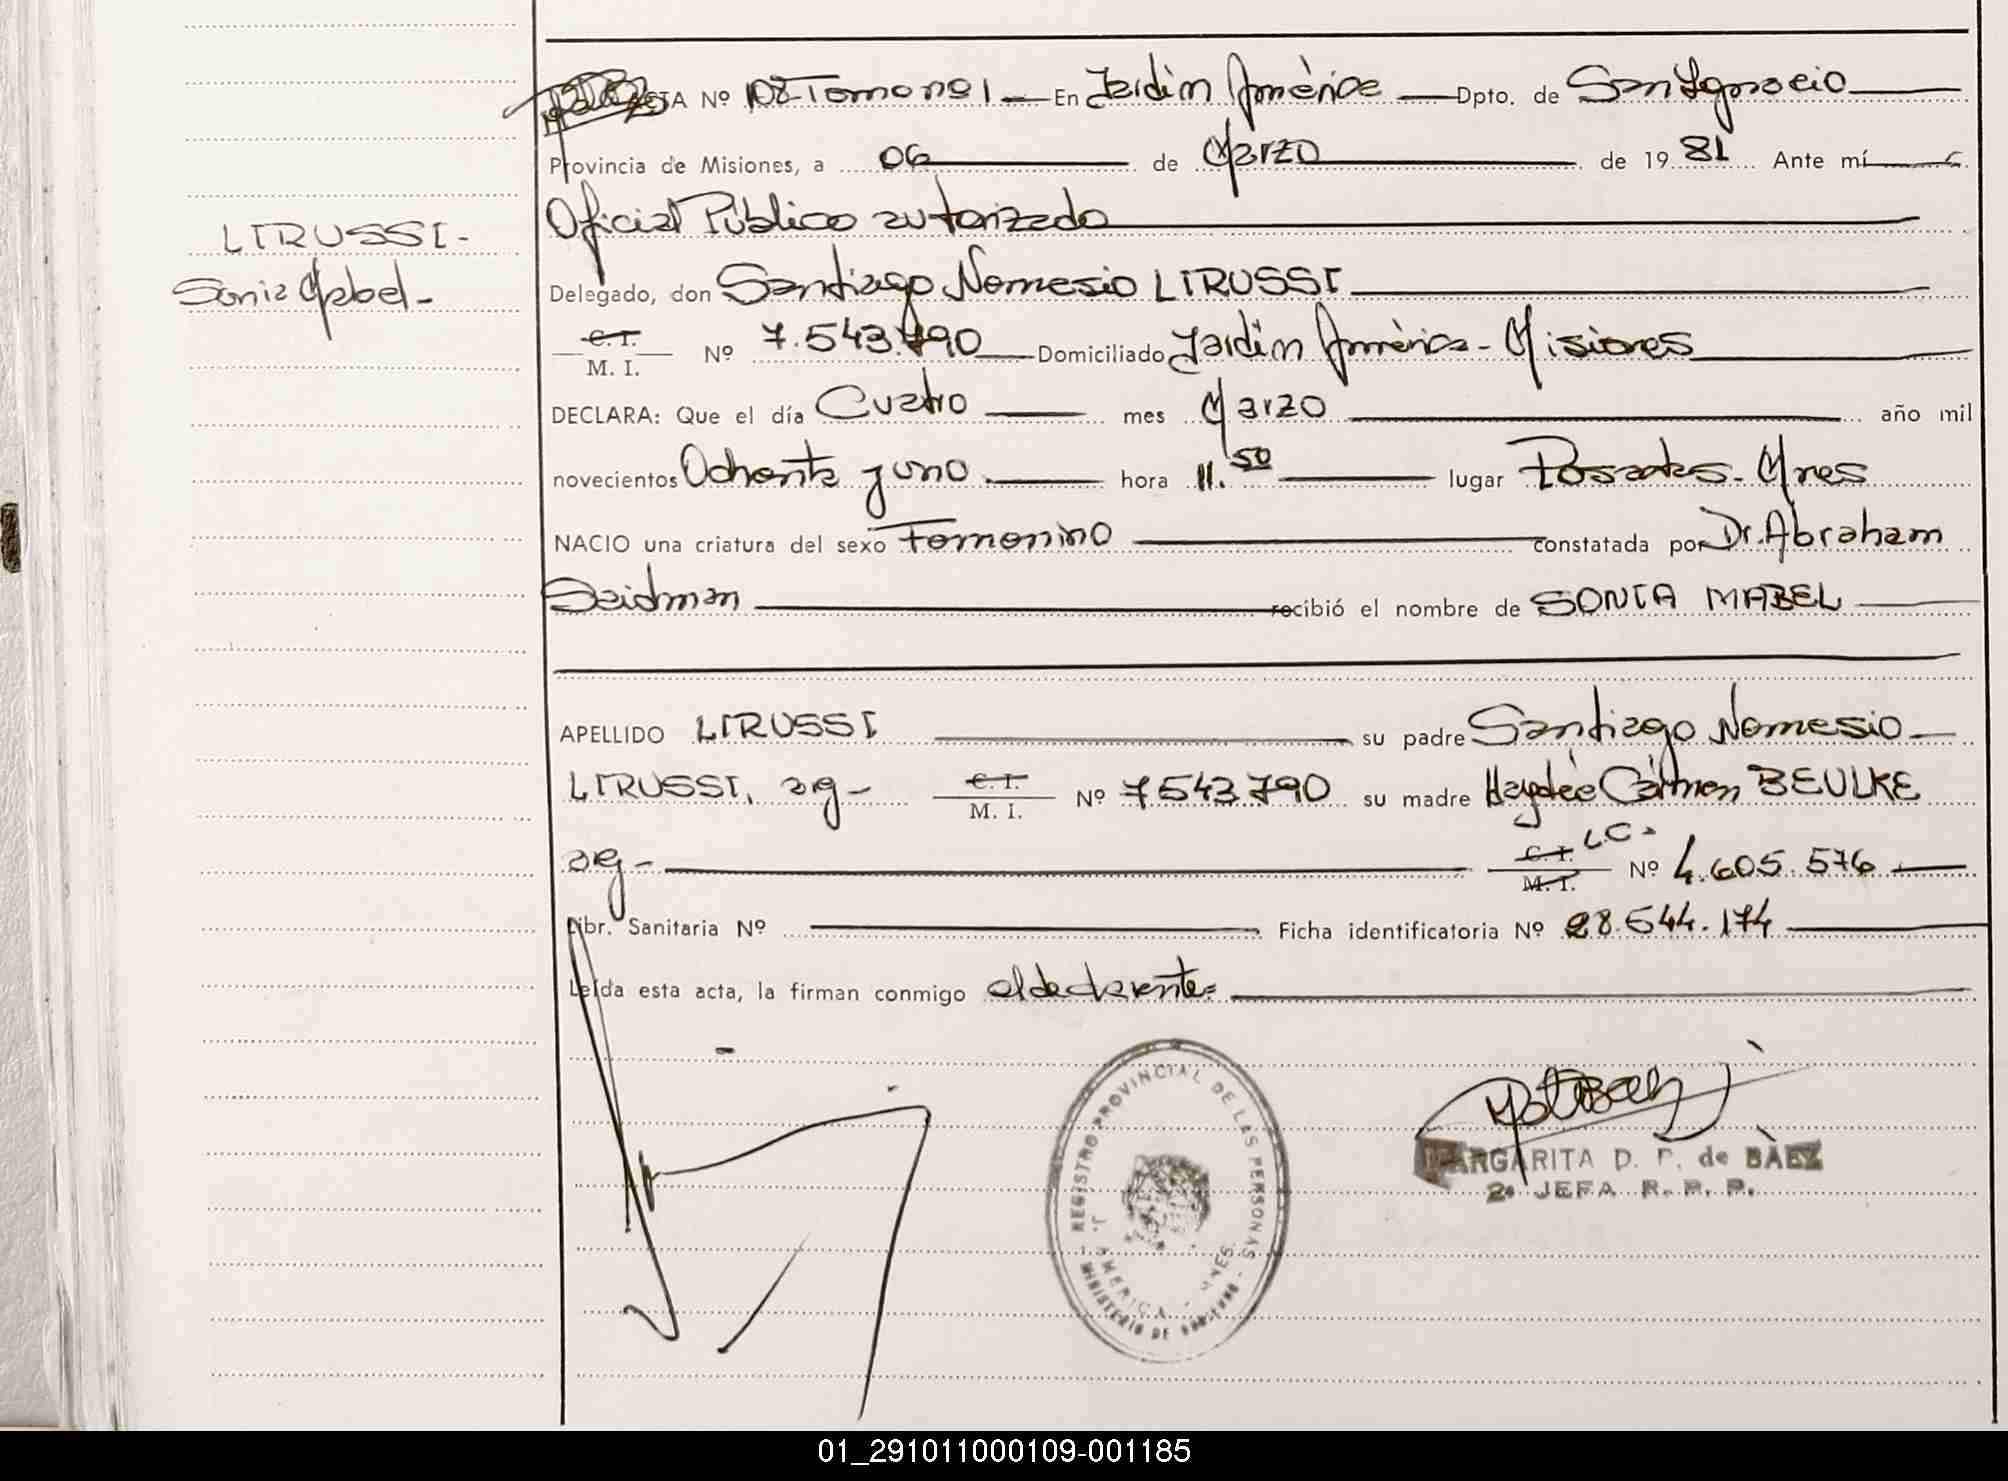 ACTA Nº 108 Tomo nº 1 En Jardin América Dpto. de San Ignacio
Provincia de Misiones, a 06 de Marzo de 19 81 Ante mí
Oficial Público autorizado
LIRUSSI -
Sonia Mabel -
Delegado, don Santiago Nemesio LIRUSSI
C. I.
M. I. Nº 7.543.790 Domiciliado Jardin América - Misiones
DECLARA: Que el día Cuatro mes Marzo año mil
novecientos Ochenta y uno hora 11.50 lugar Posadas - Mnes
NACIO una criatura del sexo Femenino constatada por Dr. Abraham
Seidman recibió el nombre de SONIA MABEL
APELLIDO LIRUSSI su padre Santiago Nemesio
LIRUSSI, arg - C. I. M. I. Nº 7543.790 su madre Haydée Cármen BEULKE
arg - C. I. M. I. L.C. Nº 4.605.576
Libr. Sanitaria Nº Ficha identificatoria Nº 28.544.174
Leída esta acta, la firman conmigo el declarante=
REGISTRO PROVINCIAL DE LAS PERSONAS
J. AMERICA - MNES.
MINISTERIO DE GOBIERNO
MARGARITA D. P. de BÀEZ
2º JEFA R. P. P.
01_291011000109-001185